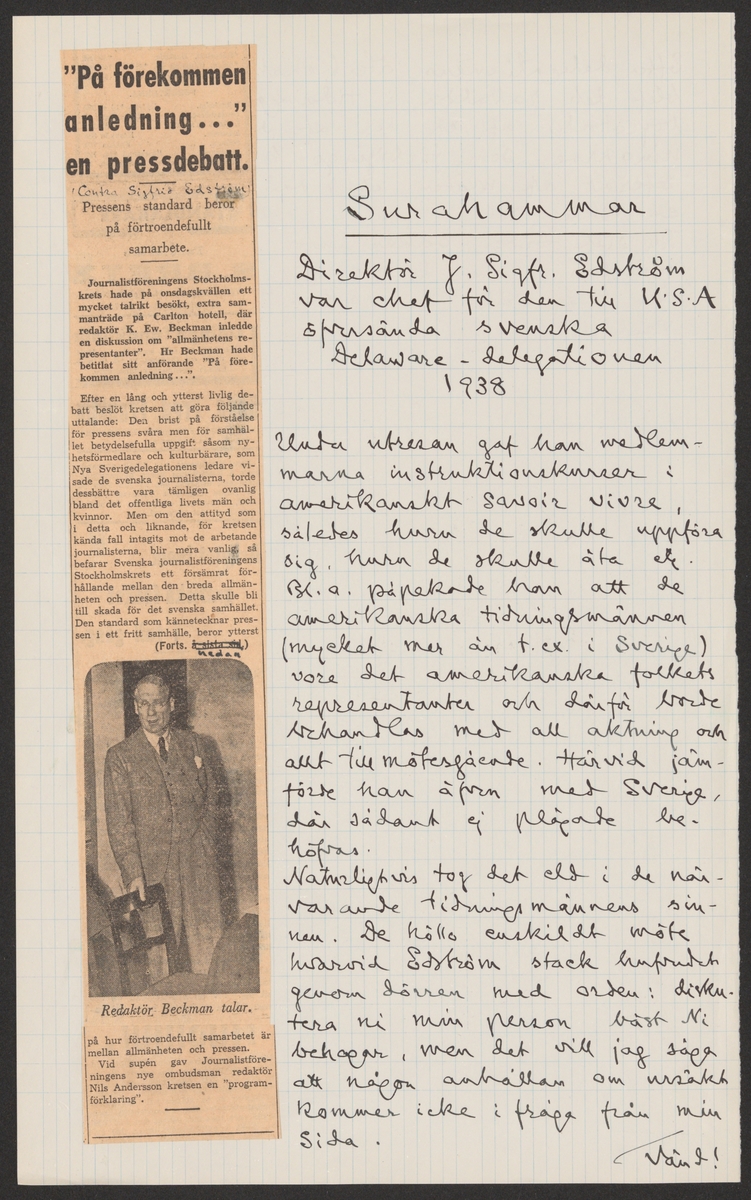 "På förekommen
anledning..."
en pressdebatt.
(Contra Sigfrid Edström)
Pressens standard beror
på förtroendefullt
samarbete.
Journalistföreningens Stockholms-
krets hade på onsdagskvällen ett
mycket talrikt besökt, extra sam-
manträde på Carlton hotell, där
redaktör K. Ew. Beckman inledde
en diskussion om "allmänhetens re-
presentanter". Hr Beckman hade
betitlat sitt anförande "På före-
kommen anledning...".
Efter en lång och ytterst livlig de-
batt beslöt kretsen att göra följande
uttalande: Den brist på förståelse
för pressens svåra men för samhäl-
let betydelsefulla uppgift såsom ny-
hetsförmedlare och kulturbärare, som
Nya Sverigedelegationens ledare vi-
sade de svenska journalisterna, torde
dessbättre vara tämligen ovanlig
bland det offentliga livets män och
kvinnor. Men om den attityd som
i detta och liknande, för kretsen
kända fall intagits mot de arbetande
journalisterna, blir mera vanlig, så
befarar Svenska journalistföreningens
Stockholmskrets ett försämrat för-
hållande mellan den breda allmän-
heten och pressen. Detta skulle bli
till skada för det svenska samhället.
Den standard som kännetecknar pres-
sen i ett fritt samhälle, beror ytterst
(Forts. å sista sid.)
nedan
Redaktör Beckman talar.
på hur förtroendefullt samarbetet är
mellan allmänheten och pressen.
Vid supén gav Journalistföre-
ningens nye ombudsman redaktör
Nils Andersson kretsen en "program-
förklaring".
Surahammar
Direktör J. Sigfr. Edström
var chef för den till U.S.A
översända svenska
Delaware-delegationen
1938
Unda utresan gaf han medlem-
marna instruktionskurser i
amerikanskt savoir vivre,
således huru de skulle uppföra
sig, huru de skulle äta etc.
Bl. a. påpekade han att de
amerikanska tidningsmännen
(mycket mer än t.ex. i Sverige)
vore det amerikanska folkets
representanter och därför borde
behandlas med all aktning och
allt till mötesgående. Härvid jäm-
förde han äfven med Sverige,
där sådant ej plägade be-
höfvas.
Naturligtvis tog det eld i de när-
varande tidningsmännens sin-
nen. De höllo enskildt möte
hvarvid Edström stack hufvudet
genom dörren med orden: disku-
tera ni min person bäst Ni
behagar, men det vill jag säga
att någon anhållan om ursäkt
kommer icke i fråga från min
sida.
Vänd!